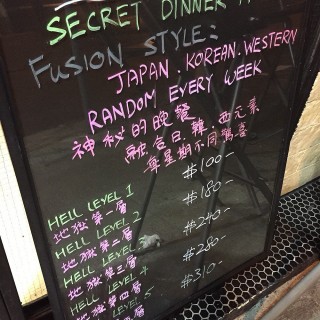 SECRET DINNER
FUSION STYLE:
JAPAN. KOREAN. WESTERN
RANDOM EVERY WEEK
神秘的晚餐
融合日.韓.西元素
每星期不同驚喜
HELL LEVEL 1 $100-
地獄第一層
HELL LEVEL 2 $180-
地獄第二層
HELL LEVEL 3 $240-
地獄第三層
HELL LEVEL 4 $280-
地獄第四層
HELL LEVEL 5 $310-